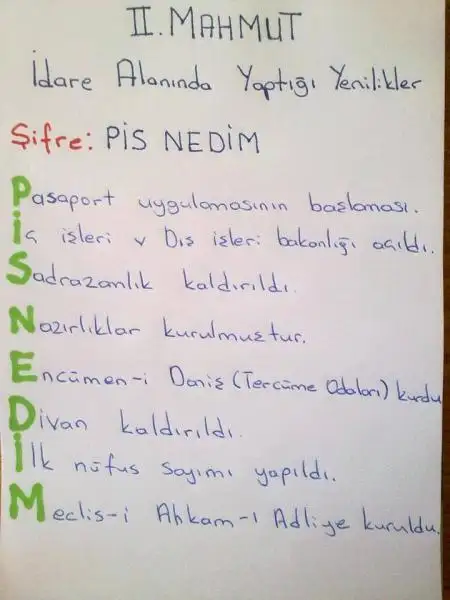 II. MAHMUT
İdare Alanında Yaptığı Yenilikler
Şifre: PİS NEDİM
Pasaport uygulamasının başlaması.
İç işleri v Dış işleri bakanlığı açıldı.
Sadrazamlık kaldırıldı.
Nazırlıklar kurulmuştur.
Encümen-i Daniş (Tercüme Odaları) kurdu
Divan kaldırıldı.
İlk nüfus sayımı yapıldı.
Meclis-i Ahkam-ı Adliye kuruldu.